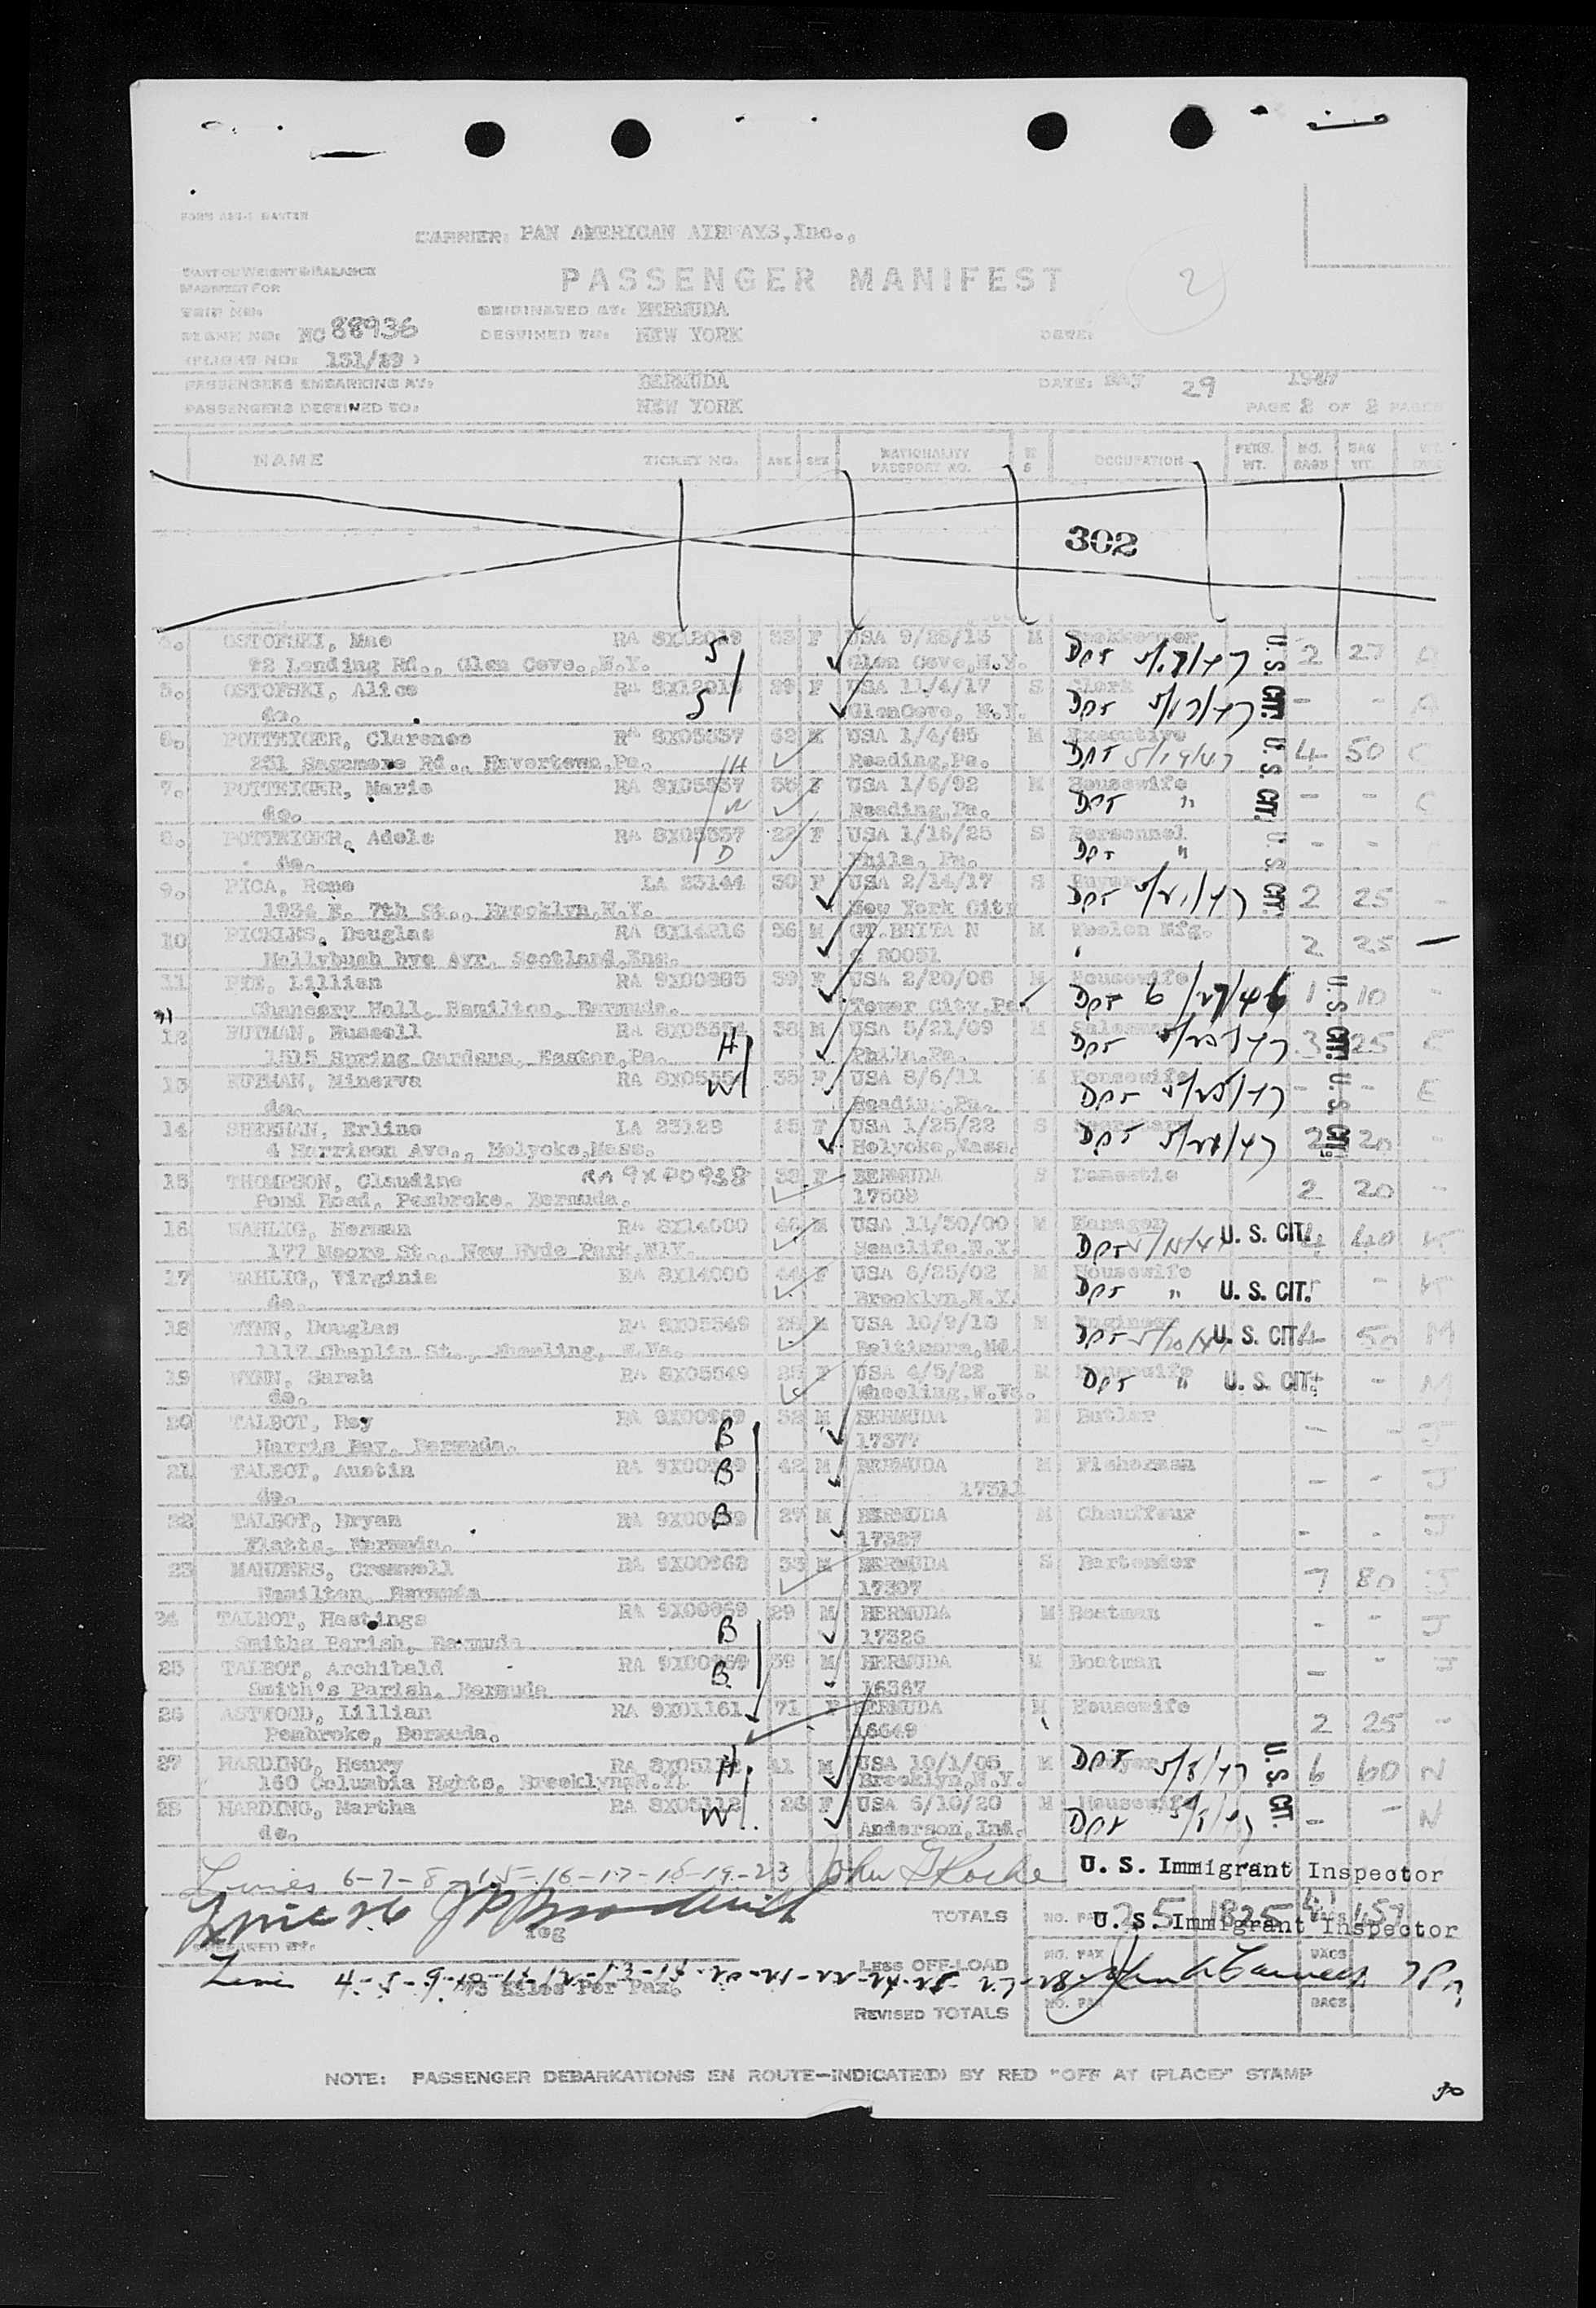 CARRIER: PAN AMERICAN AIRWAYS,Inc.,
PASSENGER MANIFEST
2
TRIP NO:
ORIGINATED AT: BERMUDA
PLANE NO: NC 88936
DESTINED TO: NEW YORK
DATE:
(FLIGHT NO: 131/29 )
PASSENGERS EMBARKING AT: BERMUDA
DATE: MAY 29 1947
PASSENGERS DESTINED TO: NEW YORK
PAGE 2 OF 2 PAGES
NAME TICKET NO. AGE SEX NATIONALITY PASSPORT NO. M S OCCUPATION PERS. WT. NO. BAGS BAG WT.
302
Mae RA 8X12019 F USA M 2 27
Landing Rd., Glen Cove.,N.Y. S Glen Cove,N.Y. Dpt 5/17/47 U. S. CIT.
5. Alice 29 F USA 11/4/17 S Clerk - - A
do. S GlenCove, N.Y. Dpt 5/17/47
6. POTTEIGER, Clarence RA 8X05557 62 M USA 1/4/85 M Executive 4 50 C
251 Sagamore Rd., Havertown,Pa. H Reading,Pa. Dpt 5/19/47 U. S. CIT.
7. POTTEIGER, Marie RA 8X05557 F USA 1/6/92 M Housewife - - C
do. W Reading,Pa. Dpt "
8. POTTEIGER, Adele RA 8X05557 22 F USA 1/16/25 S Personnel - -
do. D Phila, Pa. Dpt " U. S. CIT.
9. PICA, Rene LA 23144 30 F USA 2/14/17 S Buyer 2 25 -
1934 E. 7th St., Brooklyn,N.Y. New York City Dpt 5/21/47
10 PICKLES, Douglas RA 8X14216 36 M GT.BRITA N M Woolen Mfg. 2 25 -
Hollybush bye Ayr, Scotland,Eng.
11 Lillian RA 9X00985 39 F USA 2/20/08 M Housewife 1 10 -
Chancery Hall, Hamilton, Bermuda. Tower City,Pa. Dpt 6/27/46 U. S. CIT.
12 Russell 38 M USA 5/21/09 M Salesman 3 25 E
1515 Spring Gardens, Easton,Pa. H Phila,Pa. Dpt
13 Minerva 35 F USA 8/6/11 M Housewife - - E
do. W Reading,Pa. Dpt U. S. CIT.
14 SHEEHAN, Erline LA 23129 25 F USA 1/25/22 S 2 20 -
4 Harrison Ave., Holyoke,Mass. Holyoke,Mass. Dpt 5/28/47
15 THOMPSON, Claudine RA 9X00938 F BERMUDA S Domestic 2 20 -
Pond Road, Pembroke, Bermuda. 17508
16 WAHLIG, Herman RA 8X14000 46 M USA 11/30/00 M Manager 4 40 K
177 Moore St., New Hyde Park,N.Y. Seaclife,N.Y. Dpt U. S. CIT.
17 WAHLIG, Virginia RA 8X14000 44 F USA 6/25/02 M Housewife - K
do. Brooklyn,N.Y. Dpt " U. S. CIT.
18 WYNN, Douglas RA 8X05549 28 M USA M Engineer 4 50 M
1117 Chaplin St., Wheeling, W.Va. Baltimore,Md. Dpt U. S. CIT.
19 WYNN, Sarah RA 8X05549 25 F USA 4/5/22 M Housewife - M
do. Wheeling,W.Va. Dpt " U. S. CIT.
20 TALBOT, Roy RA 9X00959 M BERMUDA M Butler - -
Harris Bay, Bermuda. B 17377
21 TALBOT, Austin 42 M BERMUDA M Fisherman - -
do. B 17311
22 TALBOT, Bryan 27 M BERMUDA M Chauffeur - -
Flatts, Bermuda. B 17327
23 MANDERS, Cromwell RA 9X00968 33 M BERMUDA S Bartender 7 80
Hamilton, Bermuda 17307
24 TALBOT, Hastings RA 9X00959 29 M BERMUDA M Boatman - -
Smiths Parish, Bermuda B 17326
25 TALBOT, Archibald RA 9X00959 39 M BERMUDA M Boatman - -
Smith's Parish, Bermuda B 16367
26 ASTWOOD, Lillian RA 9X01161 71 F BERMUDA M Housewife 2 25 -
Pembroke, Bermuda. 16649
27 HARDING, Henry 41 M USA 10/1/05 M 6 60 N
160 Columbia Hghts, Brooklyn,N.Y. H Brooklyn,N.Y. Dpt 5/8/47 U. S. CIT.
28 HARDING, Martha RA 8X05112 26 F USA 6/10/20 M Housewife - - N
do. W Anderson,Ind. Dpt
Lines 6-7-8-15-16-17-18-19-23 John G Roche U. S. Immigrant Inspector
Line 26
TOTALS NO. PAX 25 1825 BAGS 457
U. S. Immigrant Inspector
PREPARED BY:
LESS OFF-LOAD NO. PAX BAGS
Line 4-5-9-
73 Kilos Per Pax.
REVISED TOTALS NO. PAX BAGS
NOTE: PASSENGER DEBARKATIONS EN ROUTE—INDICATE(D) BY RED "OFF AT (PLACE)" STAMP